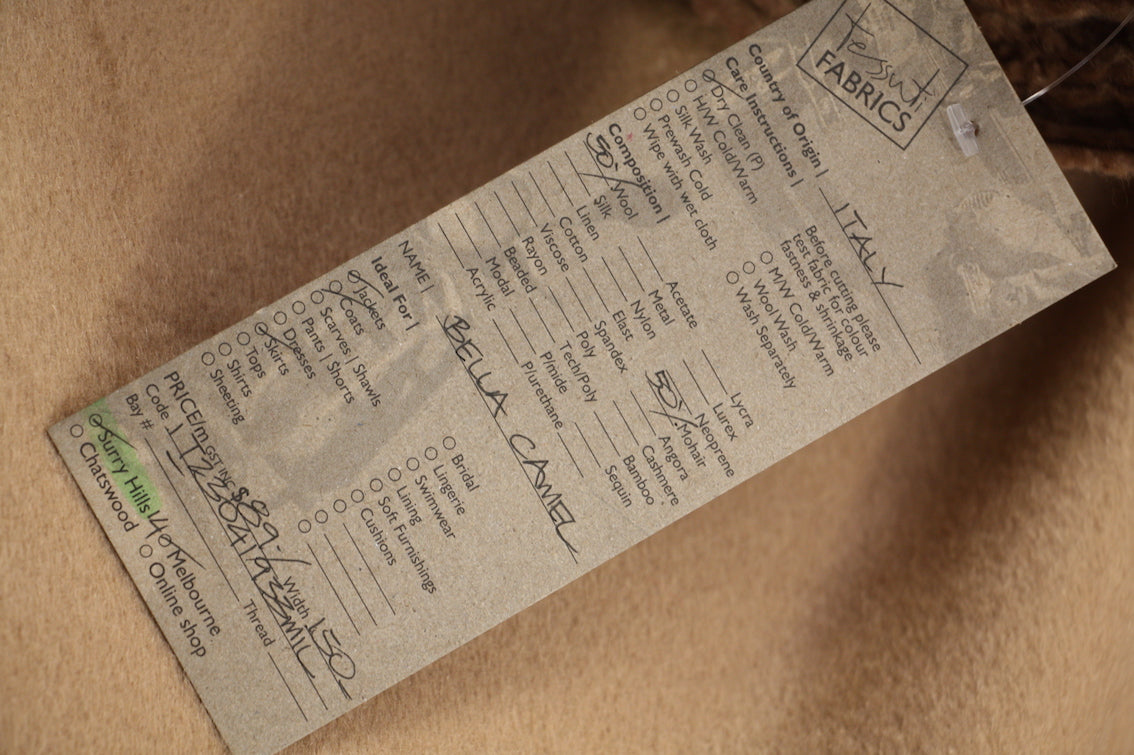 tessuti
FABRICS
Country of Origin | ITALY
Care Instructions |
Dry Clean (P)
H/W Cold/Warm
Silk Wash
Prewash Cold
Wipe with wet cloth
Before cutting please
test fabric for colour
fastness & shrinkage
M/W Cold/Warm
Wool Wash
Wash Separately
Composition |
50% Wool
Silk
Linen
Cotton
Viscose
Rayon
Beaded
Modal
Acrylic
Acetate
Metal
Nylon
Elast
Spandex
Poly
Tech/Poly
P/mide
P/urethane
Lycra
Lurex
Neoprene
50% Mohair
Angora
Cashmere
Bamboo
Sequin
NAME | BELLA CAMEL
Ideal For |
Jackets
Coats
Scarves | Shawls
Pants | Shorts
Dresses
Skirts
Tops
Shirts
Sheeting
Bridal
Lingerie
Swimwear
Lining
Soft Furnishings
Cushions
PRICE/m GST INC $89.- Width 150
Code |
Bay # Thread
Surry Hills 40 Melbourne
Chatswood Online shop